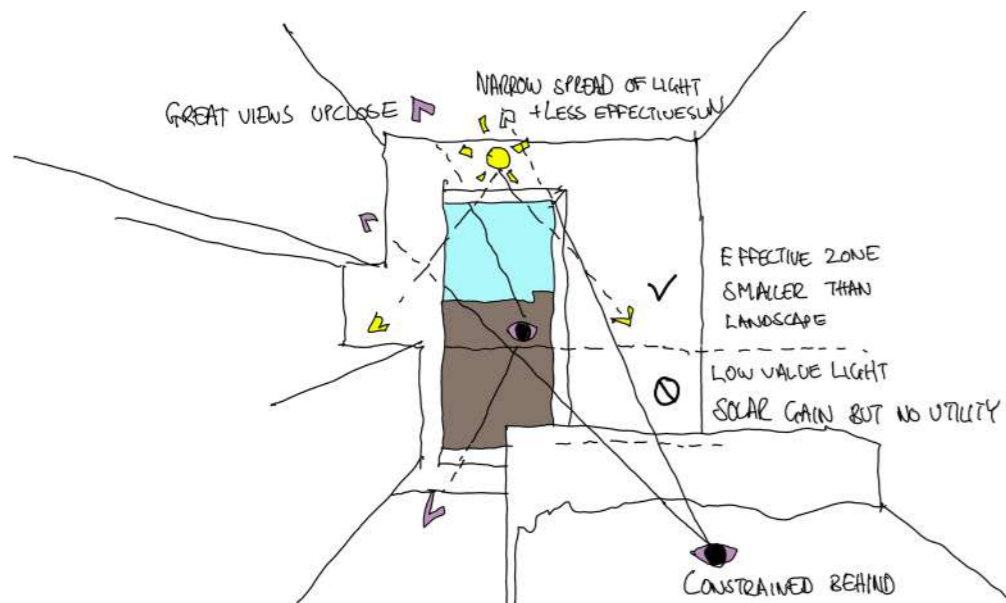 GREAT VIEWS UPCLOSE
NARROW SPREAD OF LIGHT
+ LESS EFFECTIVE SUN
EFFECTIVE ZONE
SMALLER THAN
LANDSCAPE
LOW VALUE LIGHT
SOLAR GAIN BUT NO UTILITY
CONSTRAINED BEHIND